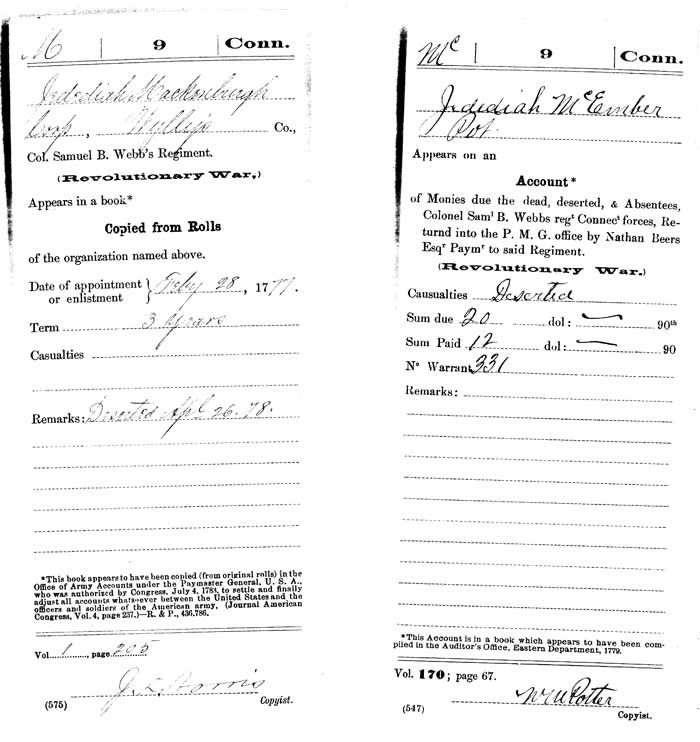 M | 9 | Conn.
Jedediah Mackenburgh
Corp, Wyllys Co.,
Col. Samuel B. Webb's Regiment.
(Revolutionary War,)
Appears in a book*
Copied from Rolls
of the organization named above.
Date of appointment
or enlistment } Feby 28, 1777.
Term 3 Years
Casualties
Remarks: Deserted Apl 26. 78.
*This book appears to have been copied (from original rolls) in the
Office of Army Accounts under the Paymaster General, U. S. A.,
who was authorized by Congress, July 4, 1783, to settle and finally
adjust all accounts whatsoever between the United States and the
officers and soldiers of the American army, (Journal American
Congress, Vol. 4, page 237.)—R. & P., 436,786.
Vol. 1, page 205
Copyist.
(575)
Mc | 9 | Conn.
Jedediah McEmber
Pvt.
Appears on an
Account*
of Monies due the dead, deserted, & Absentees,
Colonel Saml B. Webbs regt Connect forces, Re-
turnd into the P. M. G. office by Nathan Beers
Esqr Paymr to said Regiment.
(Revolutionary War.)
Causualties Deserted
Sum due 20 dol: — 90th
Sum Paid 12 dol: — 90
No Warrant 331
Remarks:
*This Account is in a book which appears to have been com-
piled in the Auditor's Office, Eastern Department, 1779.
Vol. 170; page 67.
Wm Potter
(547) Copyist.